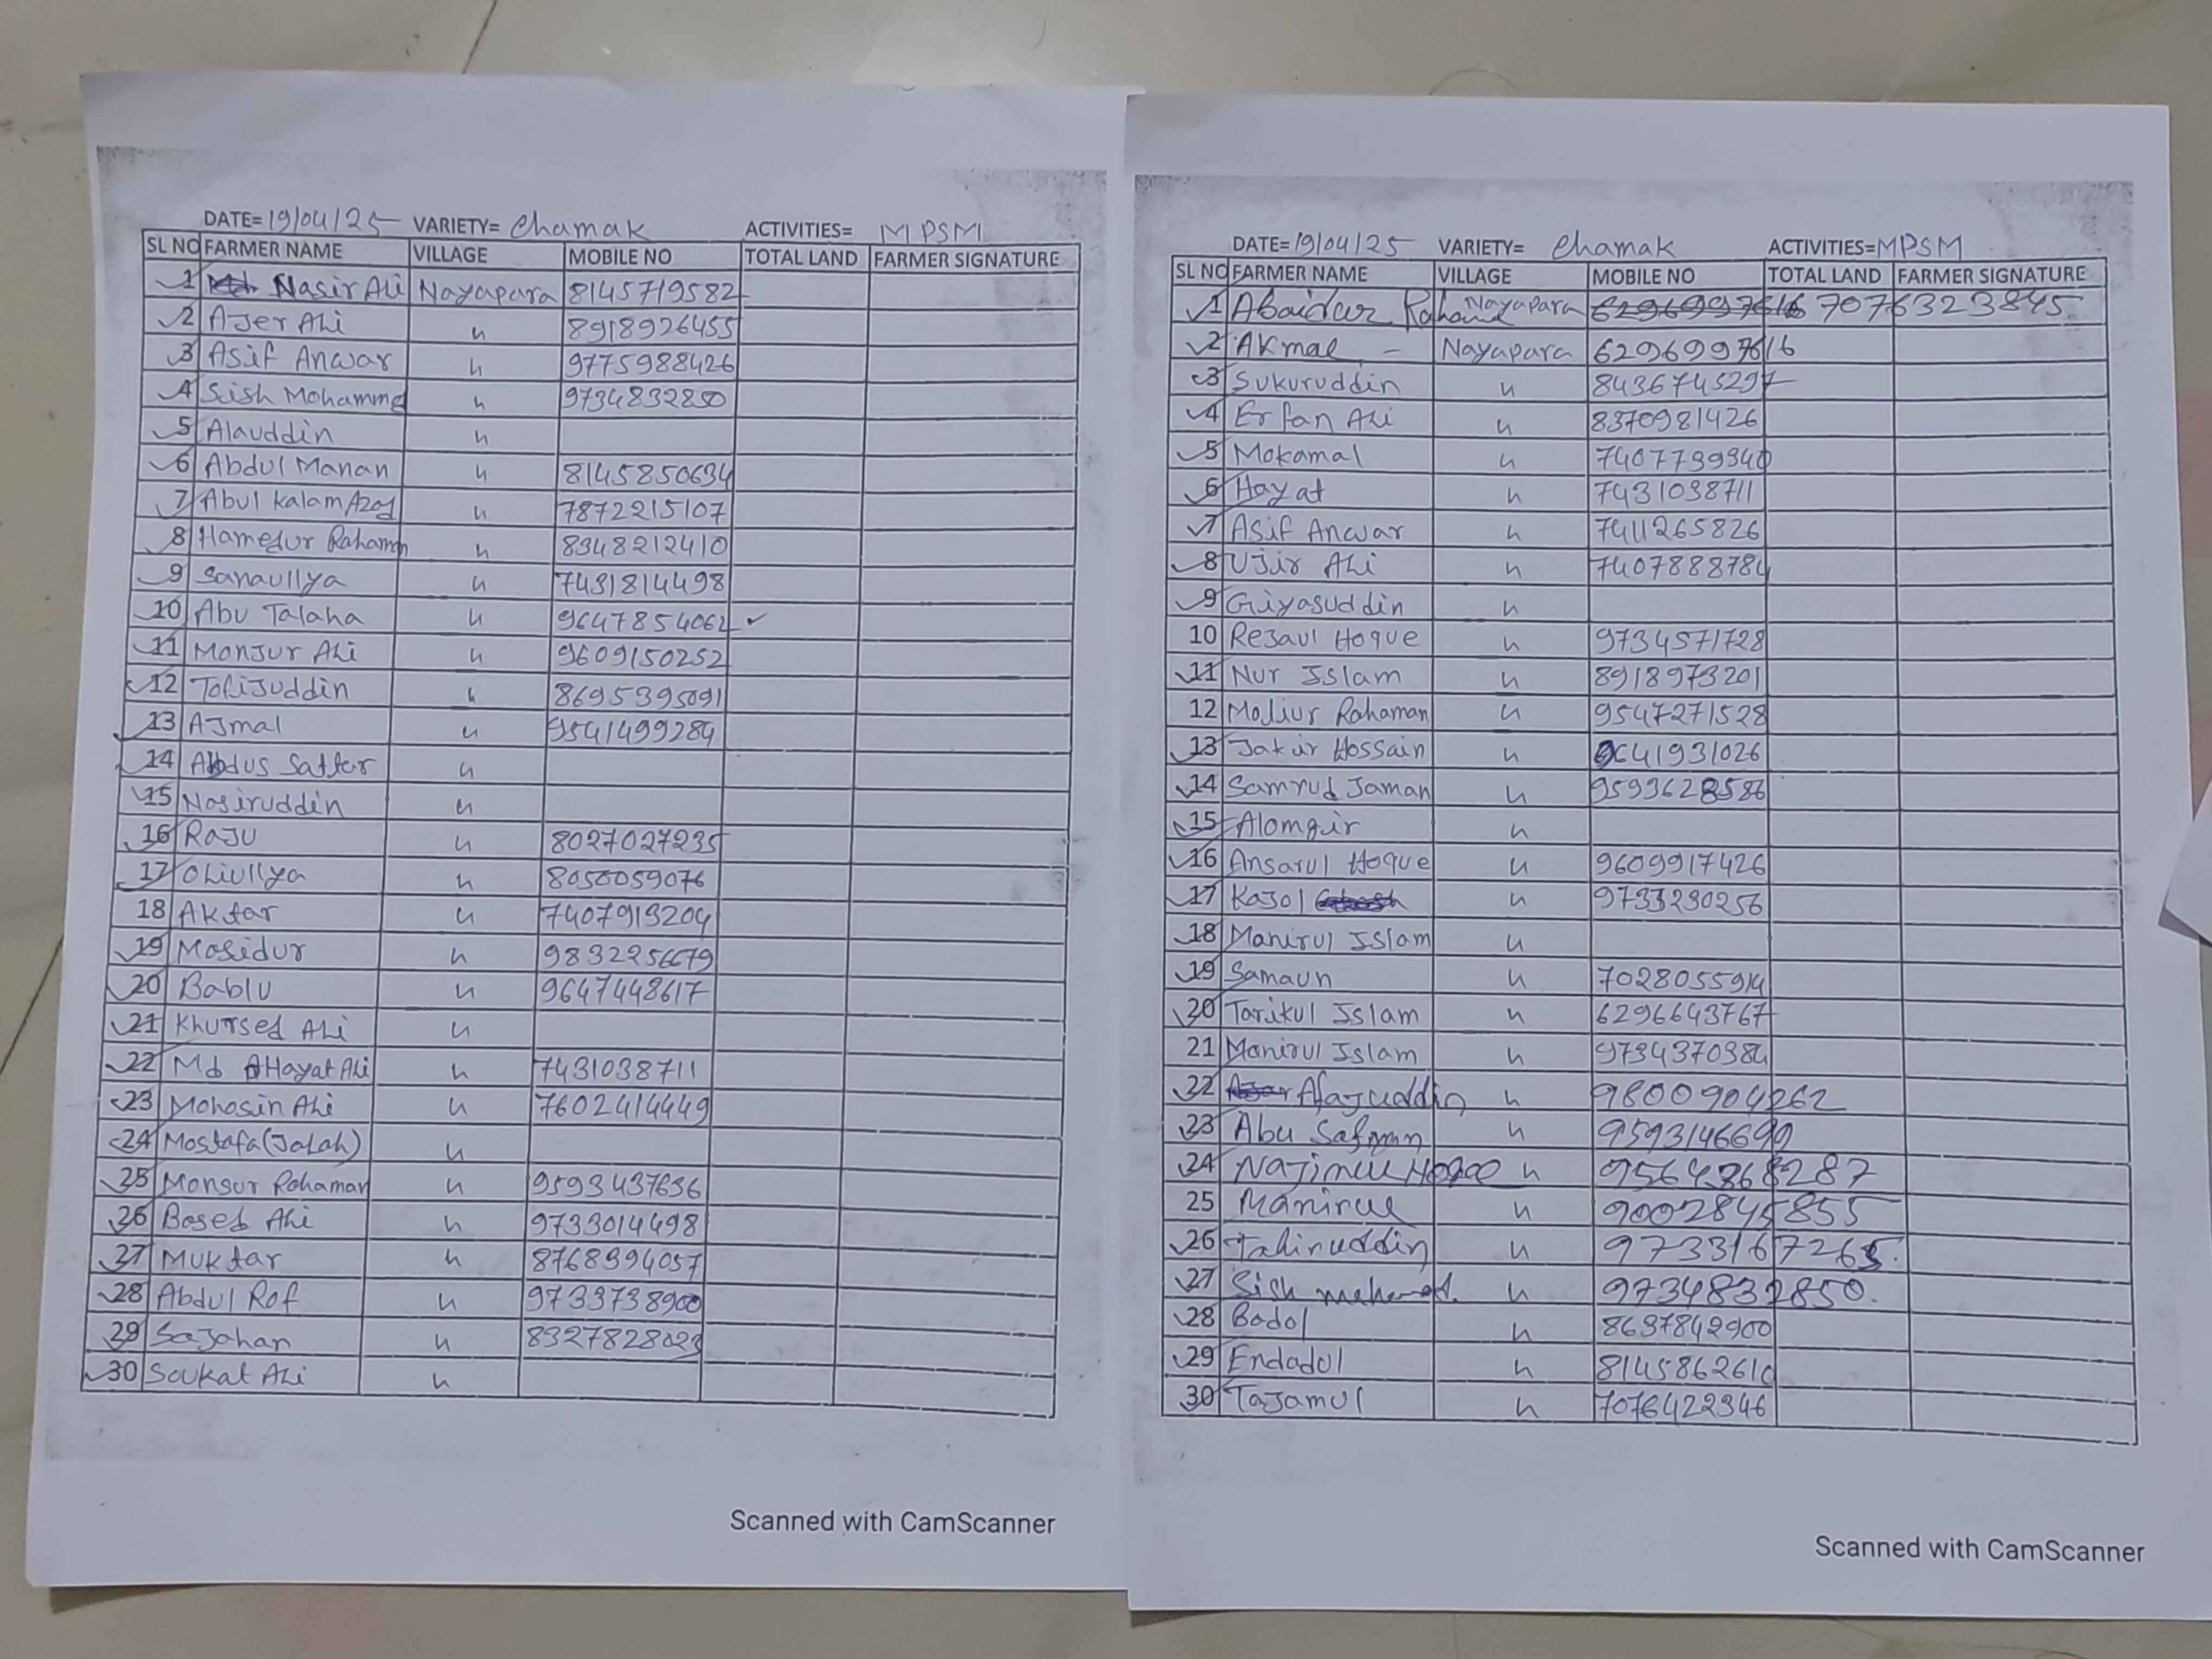 DATE= 19/04/25 VARIETY= Chamak ACTIVITIES= MPSM
SL NO FARMER NAME VILLAGE MOBILE NO TOTAL LAND FARMER SIGNATURE
1 Nasir Ali Nayapara 8145719582
2 AJer Ali 〃 8918926455
3 Asif Anwar 〃 9775988426
4 Sish Mohammed 〃 9734832850
5 Alauddin 〃
6 Abdul Manan 〃 8145850634
7 Abul Kalam Azad 〃 7872215107
8 Hamedur Rahaman 〃 8348212410
9 Sanaullya 〃 7431814498
10 Abu Talaha 〃 9647854062 ✓
11 Monjur Ali 〃 9609150252
12 Tofijuddin 〃 8695395091
13 AJmal 〃 9541499284
14 Abdus Sattar 〃
15 Nasiruddin 〃
16 RaJu 〃 8027027235
17 Oliullya 〃 8050059076
18 Aktar 〃 7407913204
19 Mosidur 〃 9832256679
20 Bablu 〃 9647448617
21 Khursed Ali 〃
22 Md Hayat Ali 〃 7431038711
23 Mohosin Ali 〃 7602414449
24 Mostafa (Jalah) 〃
25 Monsur Rahaman 〃 9593437636
26 Bosed Ali 〃 9733014498
27 Muktar 〃 8768994057
28 Abdul Rof 〃 9733738900
29 SaJahan 〃 8327828023
30 Soukat Ali 〃
Scanned with CamScanner
DATE= 19/04/25 VARIETY= Chamak ACTIVITIES= MPSM
SL NO FARMER NAME VILLAGE MOBILE NO TOTAL LAND FARMER SIGNATURE
1 Abaidur Rahaman Nayapara 6296997616 7076323845
2 AKmal - Nayapara 6296997616
3 Sukuruddin 〃 8436745297
4 Erfan Ali 〃 8370981426
5 Mokamal 〃 7407739340
6 Hayat 〃 7431038711
7 Asif Anwar 〃 7411265826
8 UJir Ali 〃 7407888784
9 Giyasuddin 〃
10 Rejaul Hoque 〃 9734571728
11 Nur Islam 〃 8918973201
12 Moliur Rahaman 〃 9547271528
13 Jakir Hossain 〃 9641931026
14 Samrud Jaman 〃 9593628586
15 Alomgir 〃
16 Ansarul Hoque 〃 9609917426
17 Kajol 〃 9733230256
18 Manirul Islam 〃
19 Samaun 〃 7028055914
20 Tarikul Islam 〃 6296643767
21 Manirul Islam 〃 9734370384
22 Afajuddin 〃 9800904262
23 Abu Safwan 〃 9593146699
24 Najimul Hoque 〃 9564868287
25 Manirul 〃 9002845855
26 Tahiruddin 〃 9733167265.
27 Sish mehamad. 〃 9734832850.
28 Badol 〃 8637842900
29 Endadul 〃 8145862610
30 TaJamul 〃 7076422346
Scanned with CamScanner